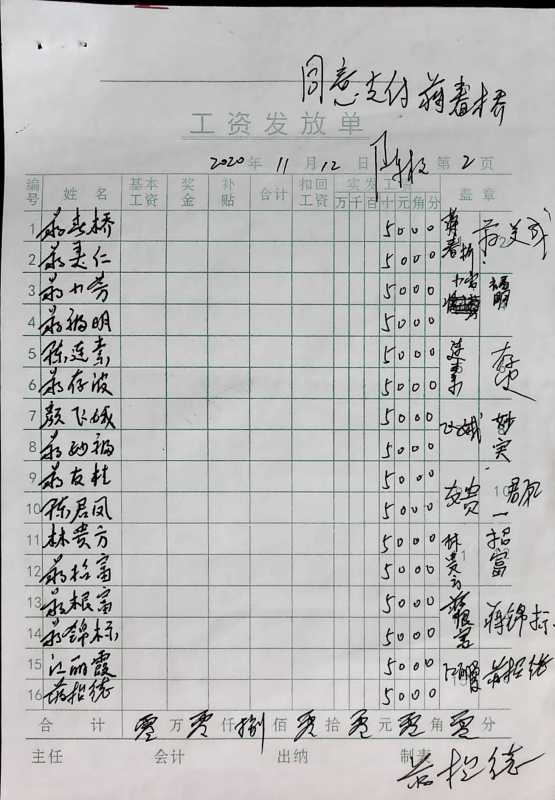 同意支付 蒋春桥
工资发放单
2020年11月12日 第2页
编号 姓名 基本工资 奖金 补贴 合计 扣回工资 实发工 万千百十元角分 盖章
1 蒋春桥 5000 蒋春桥
2 蒋美仁 5000
3 蒋小芳 5000
4 蒋福明 5000 福明
5 陈连素 5000 连素
6 蒋存波 5000
7 颜飞娥 5000 飞娥
8 蒋妙福 5000 妙实
9 蒋友桂 5000
10 陈君凤 5000 君凤
11 林贵方 5000 林贵方
12 蒋招富 5000 招富
13 蒋根富 5000
14 蒋锦标 5000 蒋锦标
15 江丽霞 5000
16 蒋招德 5000 蒋招德
合计 零万零仟捌佰零拾零元零角零分
主任 会计 出纳 制表
蒋招德